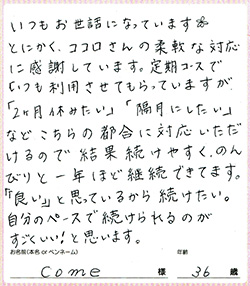 いつもお世話になっています🌼
とにかく、ココロさんの柔軟な対応
に感謝しています。定期コースで
いつも利用させてもらっていますが、
「2ヶ月休みたい」「隔月にしたい」
などこちらの都合に対応いただ
けるので結果続けやすく、のん
びりと一年ほど継続できてます。
「良い」と思っているから続けたい。
自分のペースで続けられるのが
すごくいい!と思います。
お名前(本名 or ペンネーム) 年齢
come 様 36 歳